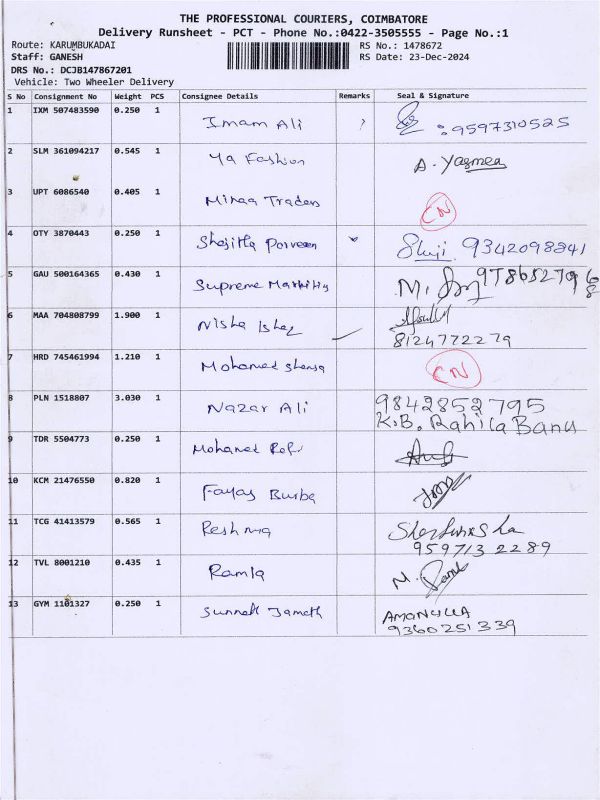 THE PROFESSIONAL COURIERS, COIMBATORE
Delivery Runsheet - PCT - Phone No.:0422-3505555 - Page No.:1
Route: KARUMBUKADAI RS No.: 1478672
Staff: GANESH RS Date: 23-Dec-2024
DRS No.: DCJB147867201
Vehicle: Two Wheeler Delivery
S No Consignment No Weight PCS Consignee Details Remarks Seal & Signature
1 IXM 507483590 0.250 1 Imam Ali :9597310525
2 SLM 361094217 0.545 1 Ya Fashion A. Yasmeen
3 UPT 6086540 0.405 1 Minaa Traders CN
4 OTY 3870443 0.250 1 Shajitha Parveen 9342098841
5 GAU 500164365 0.430 1 Supreme M.
6 MAA 704808799 1.900 1 Nisha 8124772279
7 HRD 745461994 1.210 1 Mohamed CN
8 PLN 1518807 3.030 1 Nazar Ali 9842852795
K.B. Rahila Banu
9 TDR 5504773 0.250 1 Mohamed Rafi
10 KCM 21476550 0.820 1 Fayas
11 TCG 41413579 0.565 1 Reshma
9597132289
12 TVL 8001210 0.435 1 Ramla M.
13 GYM 1101327 0.250 1 Sunnath Jamath AMANULLA
9360251339